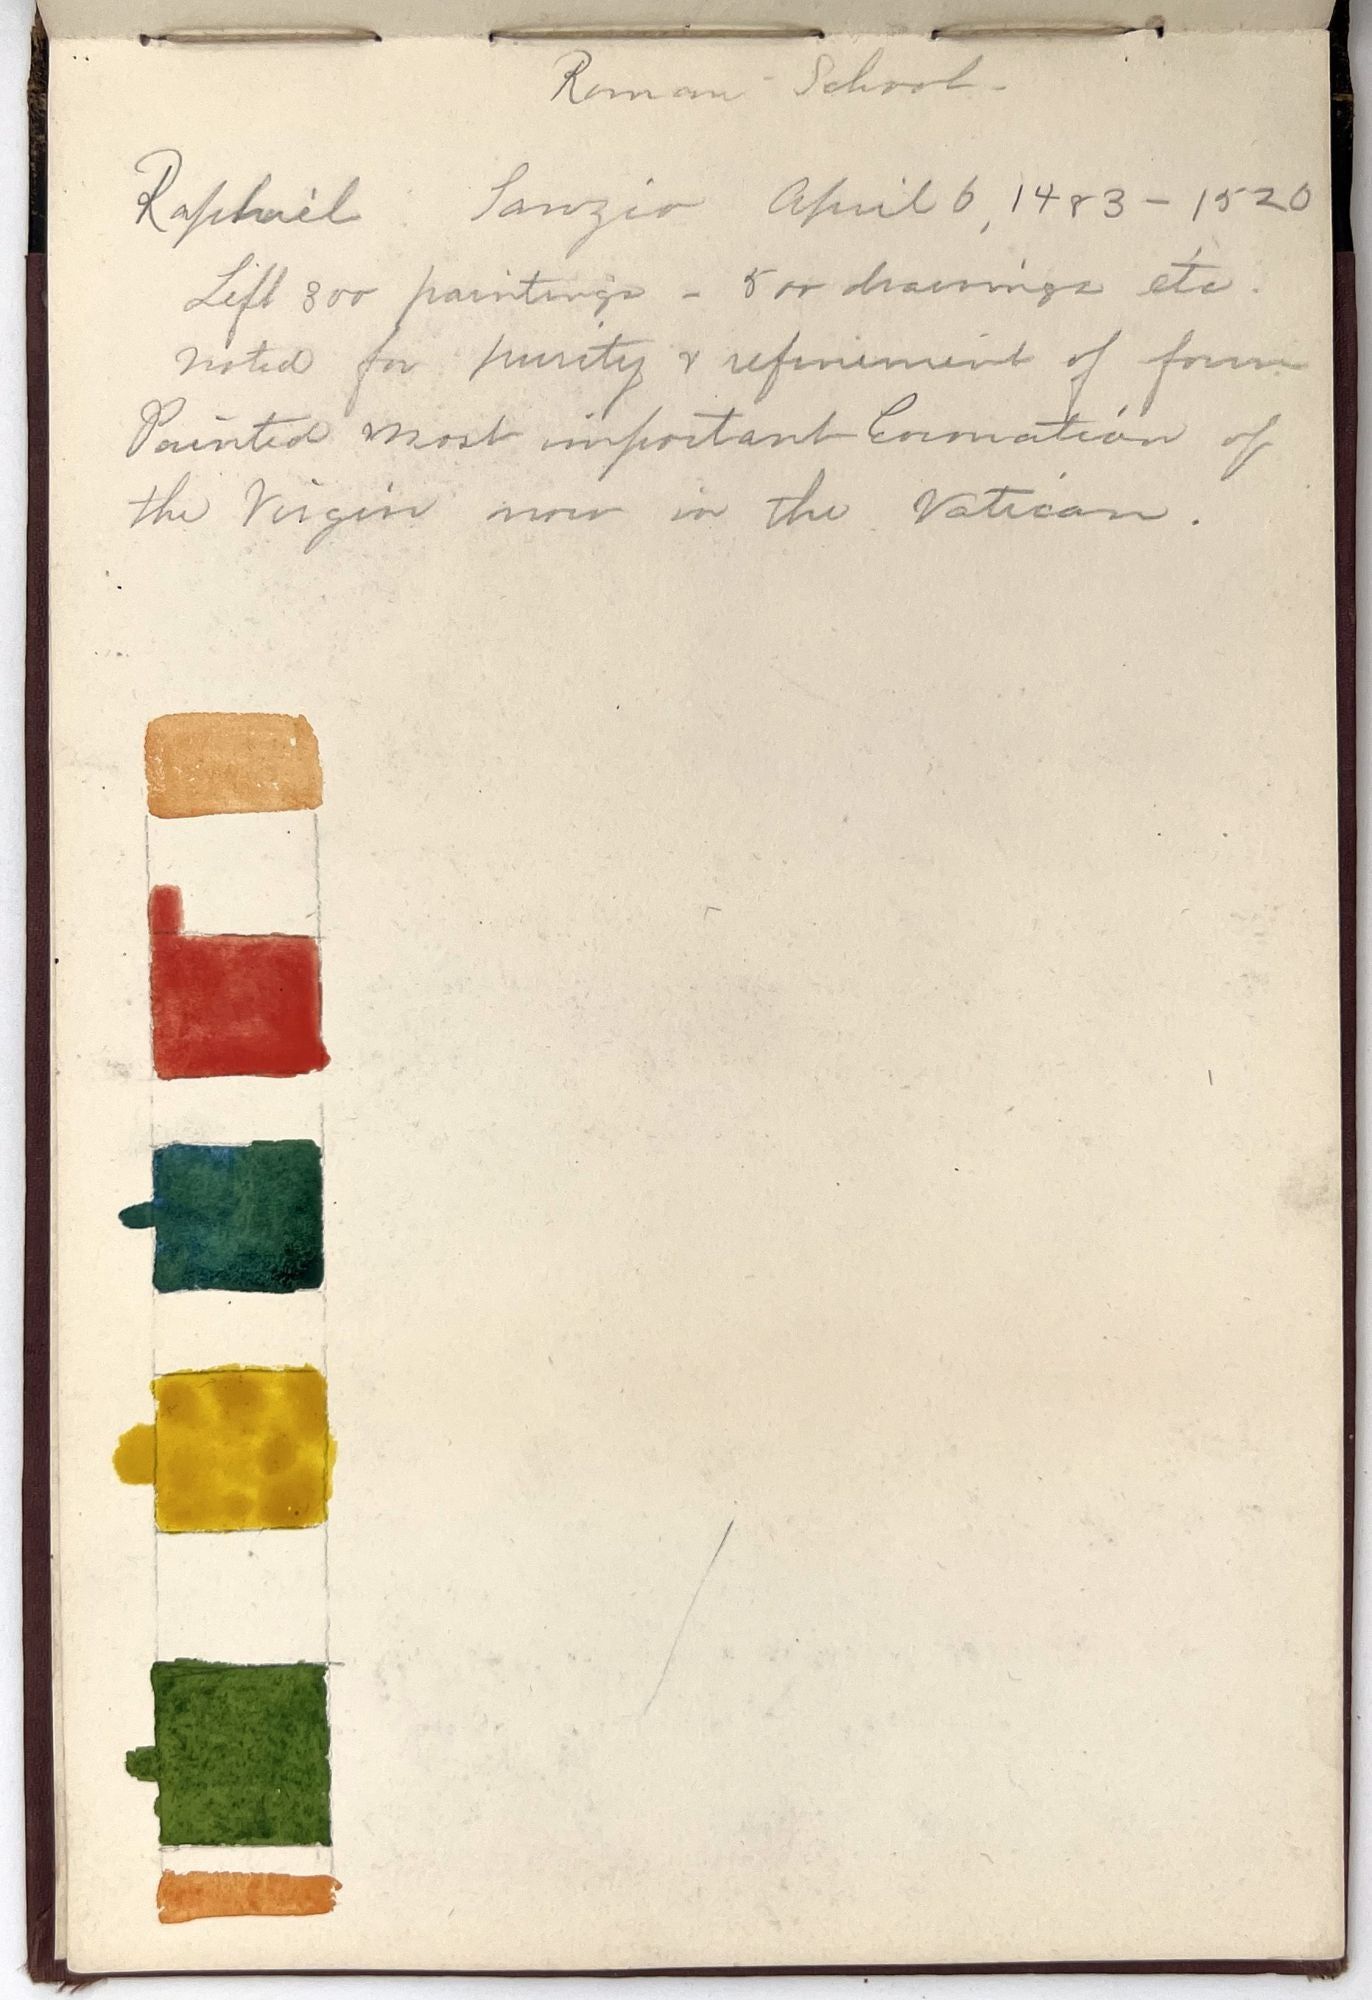 Roman School -
Raphael Sanzio April 6, 1483 - 1520
Left 300 paintings - 500 drawings etc.
noted for purity & refinement of form
Painted most important Coronation of
the Virgin now in the Vatican.